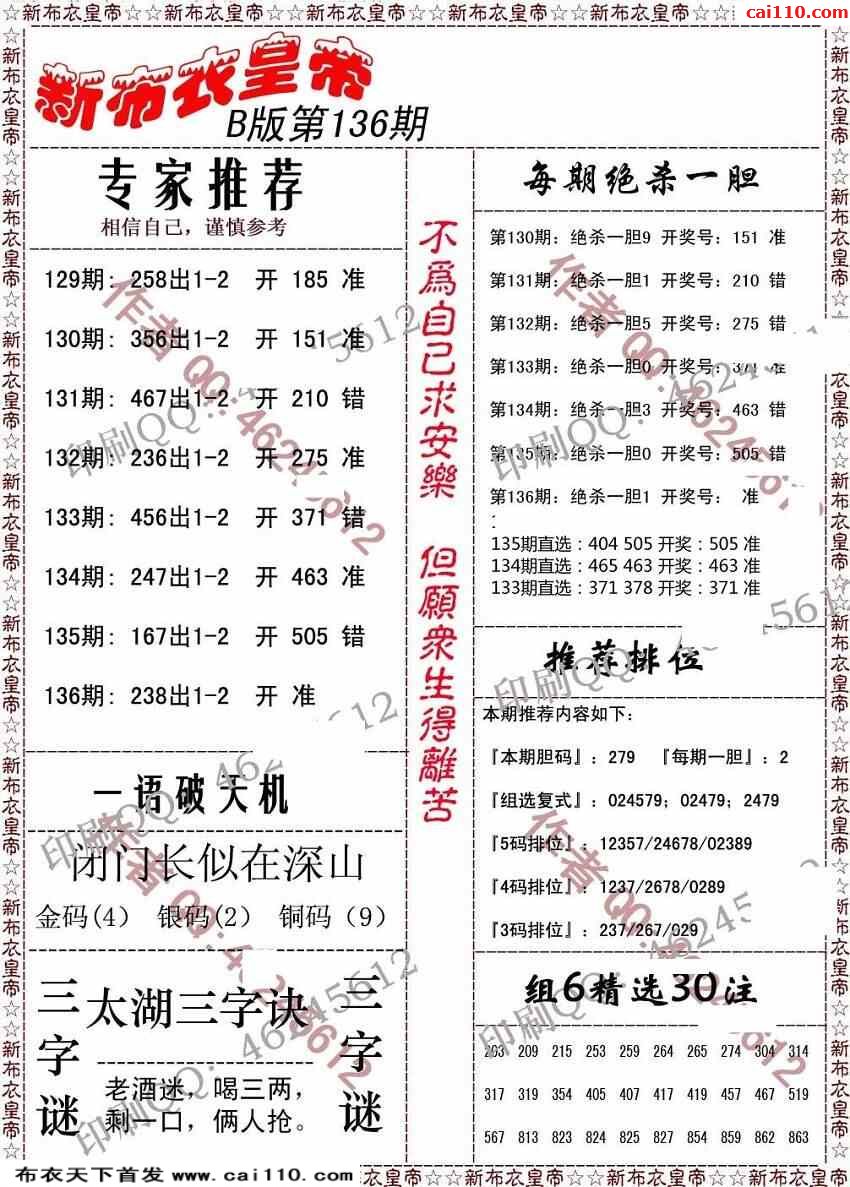 ☆☆新布衣皇帝☆☆新布衣皇帝☆☆新布衣皇帝☆☆新布衣皇帝☆☆新布衣皇帝☆☆新布衣皇帝☆☆
cai110.com
新布衣皇帝
B版第136期
专家推荐
相信自己，谨慎参考
129期: 258出1-2 开 185 准
130期: 356出1-2 开 151 准
131期: 467出1-2 开 210 错
132期: 236出1-2 开 275 准
133期: 456出1-2 开 371 错
134期: 247出1-2 开 463 准
135期: 167出1-2 开 505 错
136期: 238出1-2 开 准
一语破天机
闭门长似在深山
金码(4) 银码(2) 铜码（9）
三字谜
太湖三字诀
老酒迷，喝三两，
剩一口，俩人抢。
三字谜
不爲自己求安樂 但願衆生得離苦
每期绝杀一胆
第130期: 绝杀一胆9 开奖号: 151 准
第131期: 绝杀一胆1 开奖号: 210 错
第132期: 绝杀一胆5 开奖号: 275 错
第133期: 绝杀一胆0 开奖号: 371 准
第134期: 绝杀一胆3 开奖号: 463 错
第135期: 绝杀一胆0 开奖号: 505 错
第136期: 绝杀一胆1 开奖号: 准
:
135期直选：404 505 开奖：505 准
134期直选：465 463 开奖：463 准
133期直选：371 378 开奖：371 准
推荐排位
本期推荐内容如下:
『本期胆码』: 279 『每期一胆』: 2
『组选复式』: 024579; 02479; 2479
『5码排位』: 12357/24678/02389
『4码排位』: 1237/2678/0289
『3码排位』: 237/267/029
组6精选30注
203 209 215 253 259 264 265 274 304 314
317 319 354 405 407 417 419 457 467 519
567 813 823 824 825 827 854 859 862 863
作者QQ:46245612
印刷QQ: 46245612
布衣天下首发 www.cai110.com
☆新布衣皇帝☆☆新布衣皇帝☆☆新布衣皇帝☆☆新布衣皇帝☆